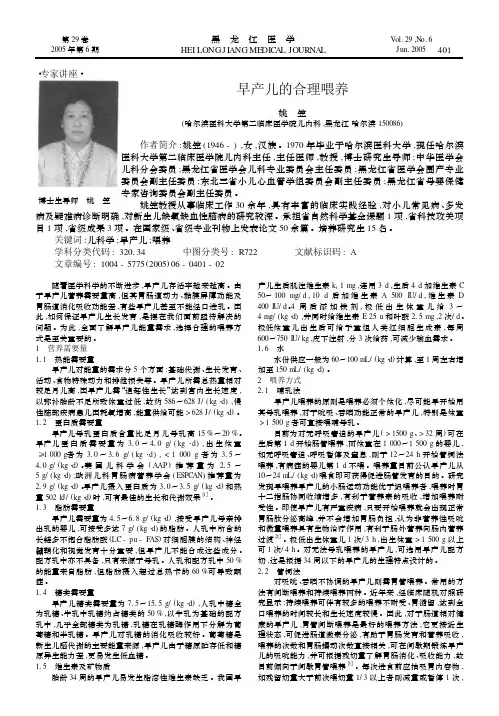 第29卷
2005年第6期
黑 龙 江 医 学
HEI LONG JIANG MEDICAL JOURNAL
Vol. 29, No. 6
Jun. 2005
401
·专家讲座·
早产儿的合理喂养
姚 竺
(哈尔滨医科大学第二临床医学院儿内科,黑龙江 哈尔滨 150086)
博士生导师 姚 竺
作者简介:姚竺(1946 - ),女,汉族。1970年毕业于哈尔滨医科大学,现任哈尔滨
医科大学第二临床医学院儿内科主任,主任医师,教授,博士研究生导师;中华医学会
儿科分会委员;黑龙江省医学会儿科专业委员会主任委员;黑龙江省医学会围产专业
委员会副主任委员;东北三省小儿心血管学组委员会副主任委员;黑龙江省母婴保健
专家咨询委员会副主任委员。
姚竺教授从事临床工作30余年,具有丰富的临床实践经验,对小儿常见病、多发
病及疑难病诊断明确,对新生儿缺氧缺血性脑病的研究较深。承担省自然科学基金课题1项,省科技攻关项
目1项,省级成果3项。在国家级、省级专业刊物上发表论文50余篇。培养研究生15名。
关键词:儿科学;早产儿;喂养
学科分类代码:320.34 中图分类号:R722 文献标识码:A
文章编号:1004 - 5775(2005)06 - 0401 - 02
随着医学科学的不断进步,早产儿存活率越来越高。由
于早产儿营养需要量高,但其胃肠道动力、胎膜屏障功能及
胃肠道消化吸收功能差,有些早产儿甚至不能经口进乳。因
此,如何保证早产儿生长发育,是摆在我们面前亟待解决的
问题。为此,全面了解早产儿能量需求,选择合理的喂养方
式是至关重要的。
1 营养需要量
1.1 热能需要量
早产儿对能量的需求分5个方面:基础代谢、生长发育、
活动、食物特殊动力和排泄损失等。早产儿所需总热量相对
较足月儿高,因早产儿需"追赶性生长"达到宫内生长速度,
以弥补胎龄不足所致体重过低,故约586~628 J/(kg·d),慢
性肺部疾病患儿因耗氧增高,能量供给可能>628 J/(kg·d)。
1.2 蛋白质需要量
早产儿母乳蛋白质含量比足月儿母乳高15%~20%。
早产儿蛋白质需要量为3.0~4.0 g/(kg·d),出生体重
≥1 000g者为3.0~3.6 g/(kg·d),<1 000 g者为3.5~
4.0 g/(kg·d)。美国儿科学会(AAP)推荐量为2.5~
5 g/(kg·d);欧洲儿科胃肠病营养学会(ESPCAN)推荐量为
2.9 g/(kg·d)。早产儿摄入蛋白质为3.0~3.5 g/(kg·d)和热
量502 kJ/(kg·d)时,可有最佳的生长和代谢效果
1.3 脂肪需要量
早产儿需要量为4.5~6.8 g/(kg·d),接受早产儿母亲排
出乳的婴儿,可接受多达7 g/(kg·d)的脂肪。人乳中所含的
长链多不饱合脂肪酸(LC - pu - FAS)对细胞膜的结构、神经
髓鞘化和视觉发育十分重要,但早产儿不能合成这些成分。
配方乳中亦不具备,只有来源于母乳。人乳和配方乳中50%
的能量来自脂肪,但脂肪摄入超过总热卡的60%可导致酮
症。
1.4 糖类需要量
早产儿糖类需要量为7.5~15.5 g/(kg·d),人乳中糖全
为乳糖,牛乳中乳糖约占糖类的50%,以牛乳为基础的配方
乳中,几乎全部糖类为乳糖,乳糖在乳糖酶作用下分解为葡
萄糖和半乳糖。早产儿对乳糖的消化吸收较好。葡萄糖是
新生儿脑代谢的主要能量来源,早产儿由于糖原贮存低和糖
原异生能力差,更易发生低血糖。
1.5 维生素及矿物质
胎龄34周的早产儿易发生脂溶性维生素缺乏。我国早
产儿生后肌注维生素k₁ 1 mg,连用3 d,生后4 d加维生素C
50~100 mg/d,10 d后加维生素A 500 IU/d,维生素D
400 IU/d,4周后添加铁剂,极低出生体重儿给3~
4 mg/(kg·d),并同时给维生素E 25 u和叶酸2.5 mg,2次/d。
极低体重儿出生后可给予重组人类红细胞生成素,每周
600~750 IU/kg,皮下注射,分3次给药,可减少输血需求。
1.6 水
水份供应一般为60~100 mL/(kg·d)计算,至1周左右增
加至150 mL/(kg·d)。
2 喂养方式
2.1 哺乳法
早产儿喂养的原则是喂养必须个体化,尽可能早开始用
其母乳喂养,对于吮吸、吞咽功能正常的早产儿,特别是体重
>1 500 g者可直接喂哺母乳。
目前为对无呼吸窘迫的早产儿(>1500 g、>32周)可在
生后第1 d开始肠管喂养,而体重在1 000~1 500 g的婴儿,
如无呼吸窘迫、呼吸暂停及窒息,则于12~24 h开始管饲法
喂养,有病症的婴儿第1 d不喂。喂养量目前公认早产儿从
10~24 mL/(kg·d)喂食即可获得促进肠管发育的目的。研究
发现早喂养早产儿的小肠运动功能优于迟喂养者,喂养时胃
十二指肠协同收缩增多,有利于营养素的吸收,增加喂养耐
受性。即使早产儿有严重疾病,只要开始喂养就会出现正常
胃肠肽分泌高峰,并不会增加胃肠负担,认为非营养性吸吮
和微量喂养具有生物治疗作用,有利于肠外营养向肠内营养
过渡。极低出生体重儿1次/3 h,出生体重>1 500 g以上
可1次/4 h。对无法母乳喂养的早产儿,可选用早产儿配方
奶,这是根据34周以下的早产儿的生理特点设计的。
2.2 管饲法
对吸吮、吞咽不协调的早产儿则需胃管喂养。常用的方
法有间断喂养和持续喂养两种。近年来,经临床随机对照研
究显示:持续喂养可伴有较多的喂养不耐受、胃潴留,达到全
口喂养的时间较长和生长速度较慢。因此,对于肠道相对健
康的早产儿,胃管间断喂养是最好的喂养方法,它更接近生
理状态,可促进脏道激素分泌,有助于胃肠发育和营养吸收,
喂养的次数和胃肠蠕动次数直接相关,可在间歇期锻炼早产
儿的吸吮能力,并可根据残奶量了解胃肠消化、吸收能力,故
目前倾向于间歇胃管喂养。每次进食前应抽吸胃内容物,
如残留奶量大于前次喂奶量1/3以上者则减量或暂停1次,